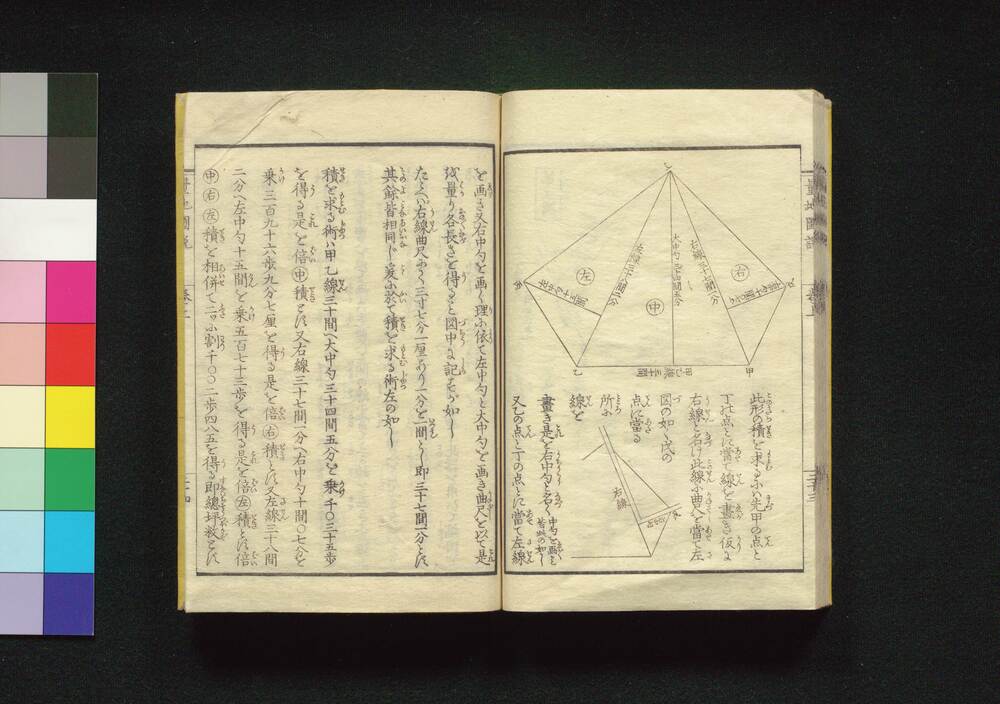 丁
戊
丙
乙
甲
右
左
中
大中勺三十四間五分
右線三十七間一分
左線三十八間二分
右中勺十間〇七分
左中勺十五間
甲乙線三十間
此形の積を求るにハ先甲の点と
丁の点とに當て線を畫き仮に
右線と名け此線に曲尺を當て左
図の如く戊の
点に當る
所に
線を
右線
畫き是を右中勺と名く
中勺を画こと
皆此の如し
又乙の点と丁の点とに當て左線
を画き又右中勺を画く理に依て左中勺と大中勺を画き曲尺を以て是
を量り各長さを得ること図中に記すが如し
たとへバ右線曲尺にて三寸七分一厘あり一分を一間とし即三十七間一分とす
其餘皆相同じ爰に於て積を求る術左の如し
積を求る術ハ甲乙線三十間へ大中勺三十四間五分を乗千〇三十五歩
を得る是を倍中積とす又右線三十七間一分へ右中勺十間〇七分を
乗三百九十六歩九分七厘を得る是を倍右積とす又左線三十八間
二分へ左中勺十五間を乗五百七十三歩を得る是を倍左積とす倍
中右左積を相併て二に割千〇〇二歩四八五を得る即總坪数とす